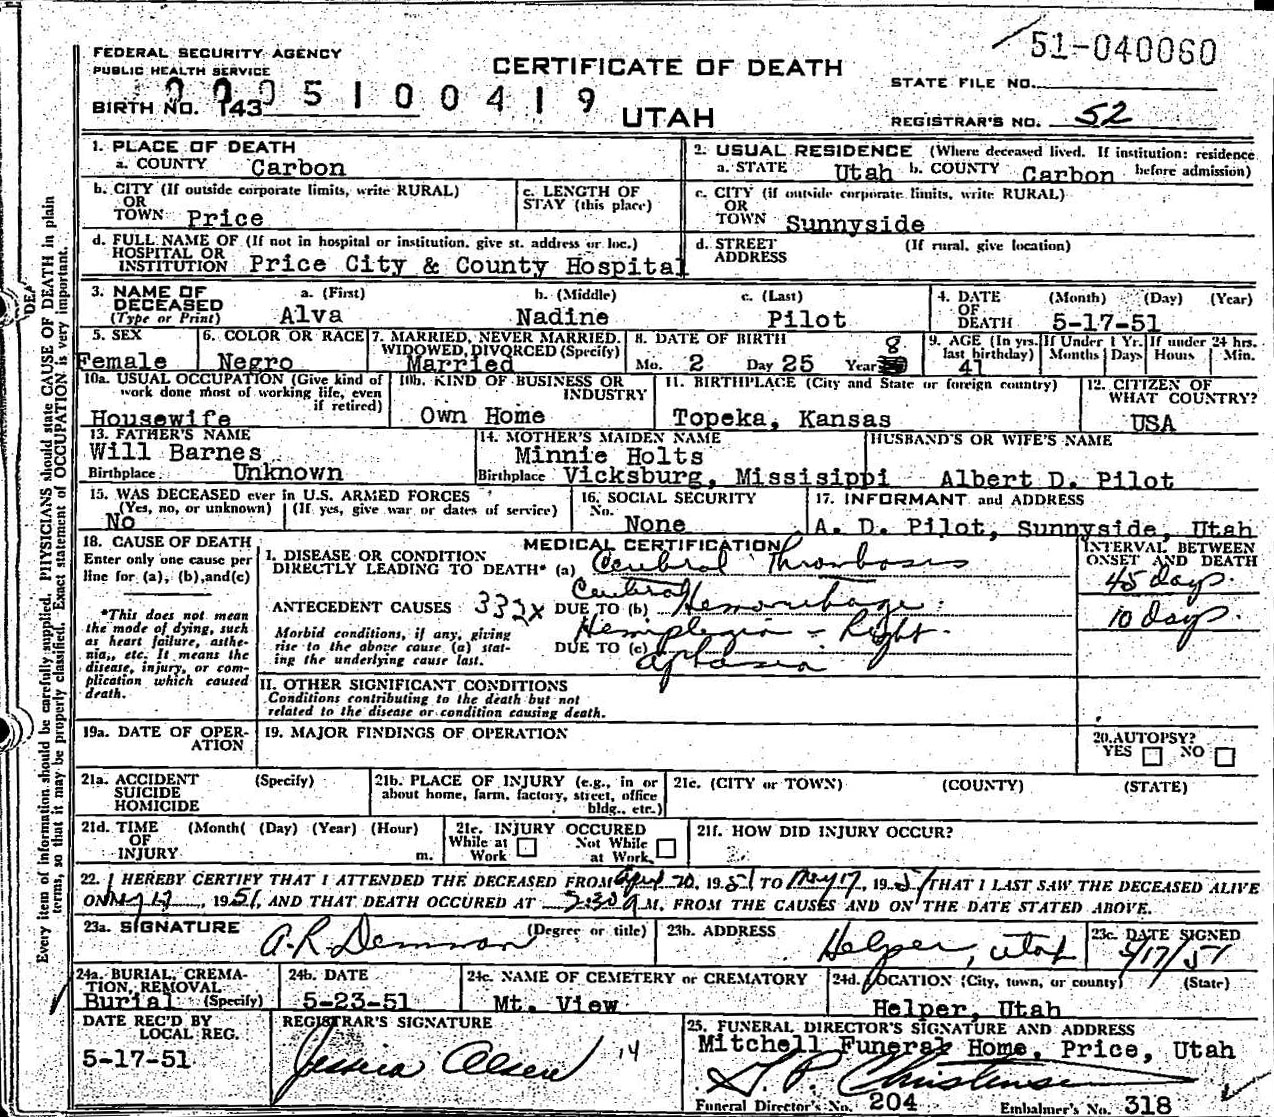 51-040060
FEDERAL SECURITY AGENCY
PUBLIC HEALTH SERVICE
CERTIFICATE OF DEATH
STATE FILE NO.
BIRTH NO. 143 0005100419
UTAH
REGISTRAR'S NO. 52
1. PLACE OF DEATH
a. COUNTY Carbon
2. USUAL RESIDENCE (Where deceased lived. If institution: residence before admission)
a. STATE Utah b. COUNTY Carbon
b. CITY (If outside corporate limits, write RURAL)
OR
TOWN Price
c. LENGTH OF
STAY (this place)
c. CITY (if outside corporate limits, write RURAL)
OR
TOWN Sunnyside
d. FULL NAME OF (If not in hospital or institution, give st. address or loc.)
HOSPITAL OR
INSTITUTION Price City & County Hospital
d. STREET (If rural, give location)
ADDRESS
3. NAME OF
DECEASED
(Type or Print)
a. (First) b. (Middle) c. (Last)
Alva Nadine Pilot
4. DATE (Month) (Day) (Year)
OF
DEATH 5-17-51
5. SEX
Female
6. COLOR OR RACE
Negro
7. MARRIED, NEVER MARRIED,
WIDOWED, DIVORCED (Specify)
Married
8. DATE OF BIRTH
Mo. 2 Day 25 Year 8
9. AGE (In yrs. last birthday)
41
If Under 1 Yr.
Months Days
If under 24 hrs.
Hours Min.
10a. USUAL OCCUPATION (Give kind of
work done most of working life, even
if retired)
Housewife
10b. KIND OF BUSINESS OR
INDUSTRY
Own Home
11. BIRTHPLACE (City and State or foreign country)
Topeka, Kansas
12. CITIZEN OF
WHAT COUNTRY?
USA
13. FATHER'S NAME
Will Barnes
Birthplace Unknown
14. MOTHER'S MAIDEN NAME
Minnie Holts
Birthplace Vicksburg, Missisippi
HUSBAND'S OR WIFE'S NAME
Albert D. Pilot
15. WAS DECEASED ever in U.S. ARMED FORCES
(Yes, no, or unknown) (If yes, give war or dates of service)
No
16. SOCIAL SECURITY
No.
None
17. INFORMANT and ADDRESS
A. D. Pilot, Sunnyside, Utah
18. CAUSE OF DEATH
Enter only one cause per
line for (a), (b), and (c)
*This does not mean
the mode of dying, such
as heart failure, asthe-
nia, etc. It means the
disease, injury, or com-
plication which caused
death.
MEDICAL CERTIFICATION
1. DISEASE OR CONDITION
DIRECTLY LEADING TO DEATH* (a) Cerebral Thrombosis
ANTECEDENT CAUSES 332x DUE TO (b) Cerebral Hemorrhage
Morbid conditions, if any, giving
rise to the above cause (a) stat-
ing the underlying cause last.
Hemiplegia - Right
DUE TO (c) aphasia
INTERVAL BETWEEN
ONSET AND DEATH
45 days
10 days
II. OTHER SIGNIFICANT CONDITIONS
Conditions contributing to the death but not
related to the disease or condition causing death.
19a. DATE OF OPER-
ATION
19. MAJOR FINDINGS OF OPERATION
20. AUTOPSY?
YES NO
21a. ACCIDENT (Specify)
SUICIDE
HOMICIDE
21b. PLACE OF INJURY (e.g., in or
about home, farm, factory, street, office
bldg., etc.)
21c. (CITY or TOWN) (COUNTY) (STATE)
21d. TIME (Month( (Day) (Year) (Hour)
OF
INJURY m.
21e. INJURY OCCURED
While at Work Not While at Work
21f. HOW DID INJURY OCCUR?
22. I HEREBY CERTIFY THAT I ATTENDED THE DECEASED FROM April 20, 1951 TO May 17, 1951 THAT I LAST SAW THE DECEASED ALIVE
ON May 17, 1951, AND THAT DEATH OCCURED AT 5:30 A M. FROM THE CAUSES AND ON THE DATE STATED ABOVE.
23a. SIGNATURE (Degree or title)
A. R. Demman
23b. ADDRESS
Helper, Utah
23c. DATE SIGNED
5/17/51
24a. BURIAL, CREMA-
TION, REMOVAL
Burial (Specify)
24b. DATE
5-23-51
24c. NAME OF CEMETERY or CREMATORY
Mt. View
24d. LOCATION (City, town, or county) (State)
Helper, Utah
DATE REC'D BY
LOCAL REG.
5-17-51
REGISTRAR'S SIGNATURE
Jessica Olsen 14
25. FUNERAL DIRECTOR'S SIGNATURE AND ADDRESS
Mitchell Funeral Home, Price, Utah
J. P. Christensen
Funeral Director's No. 204 Embalmer's No. 318
Every item of information should be carefully supplied. PHYSICIANS should state CAUSE OF DEATH in plain
terms, so that it may be properly classified. Exact statement of OCCUPATION is very important.
DEA